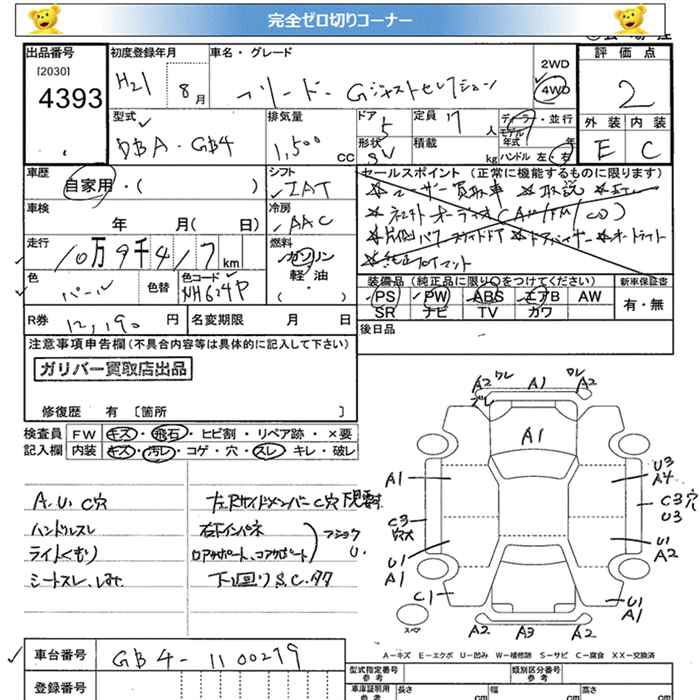 完全ゼロ切りコーナー
出品番号 初度登録年月 車名・グレード 評価点
[2030]
4393
H21 8月 フリード Gジャストセレクション 2WD 4WD 2
型式 排気量 ドア 定員 ディーラー・並行 外装 内装
DBA・GB4 1,500 CC 5 7人 モデル年式 年 E C
形状 5V 積載 kg ハンドル 左・右
車歴 シフト セールスポイント (正常に機能するものに限ります)
自家用・( ) IAT ☆ユーザー買取車 ☆取説
車検 冷房
年 月( 日) AAC
走行 燃料 ☆片側パワースライドドア ☆ドアバイザー ☆オートライト
10万9千417km ガソリン
軽油
( ・ )
色 色替 色コード 装備品(純正品に限り○をつけてください) 新車保証書
パール NH624P PS PW ABS エアB AW 有・無
SR ナビ TV カワ
R券 12,190円 名変期限 月 日 後日品
注意事項申告欄(不具合内容等は具体的に記入して下さい)
ガリバー買取店出品
修復歴 有 [箇所 ]
検査員 FW キズ・飛石・ヒビ割・リペア跡・×要
記入欄 内装 キズ・汚レ・コゲ・穴・スレ・キレ・破レ
A.U.C穴
ハンドルスレ 右下インパネ
ライトくもり ロアサポート、コアサポート
シートスレ、シミ 下廻りS.C.タタ
A2 ワレ A1 ワレ A2
ズレ
A1
A1 U3 A4
C3 穴大 C3穴 U3
U1 A1 U1 A2
C1 U1 A1
スペア A2 A3 A2
A-キズ E-エクボ U-凹み W-補修跡 S-サビ C-腐食 XX-交換済
車台番号 GB4-1100279
登録番号
型式指定番号 類別区分番号
車庫証明用 長さ cm 幅 cm 高さ cm
参考